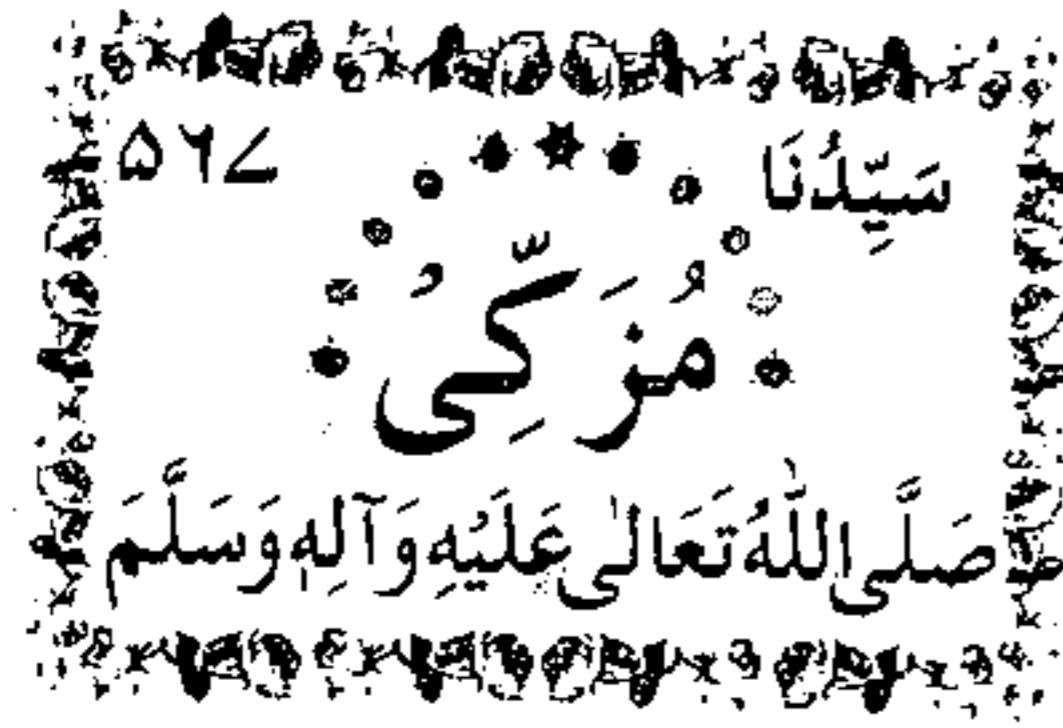 سَيِّدُنَا ۵۶۷
مُزَكِّیُ
صَلَّى اللّٰهُ تَعَالٰى عَلَيْهِ وَآلِهٖ وَسَلَّمَ